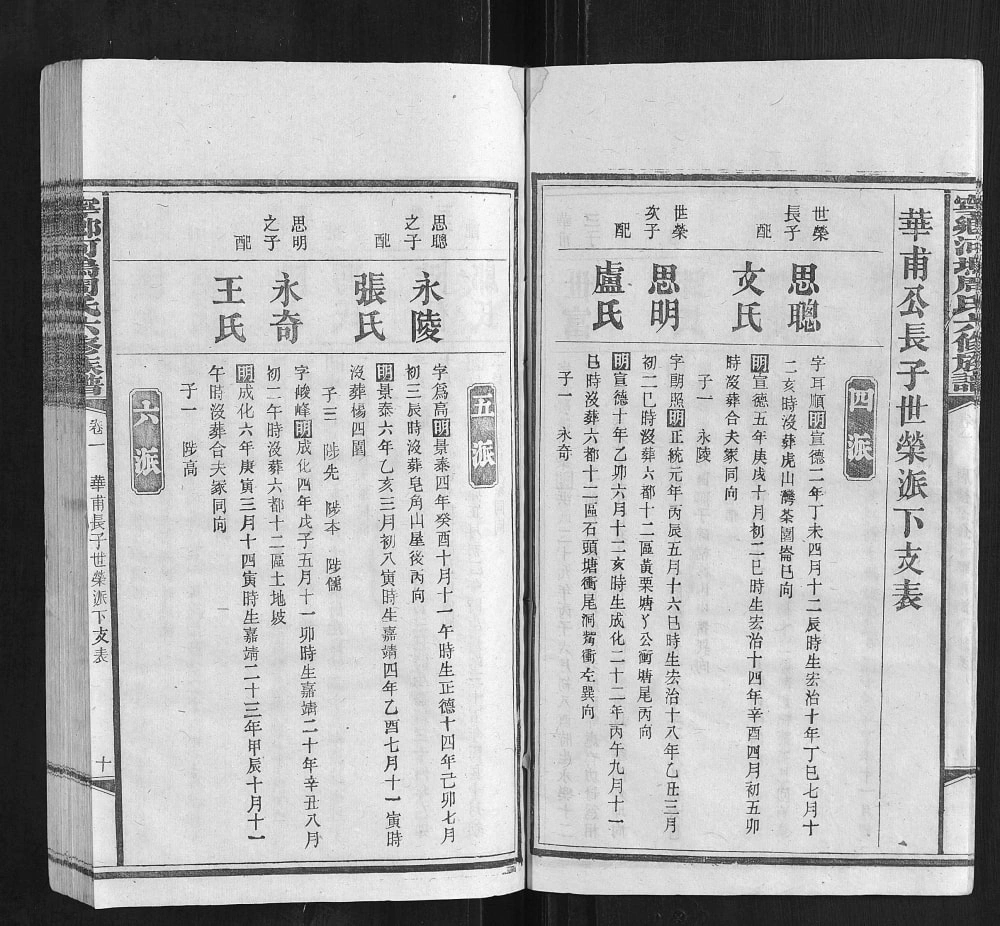 寧鄉河塢周氏六修族譜
華甫公長子世榮派下支表
四派
世榮長子
思聰
字耳順明宣德二年丁未四月十二辰時生宏治十年丁巳七月十
二亥時沒葬虎山灣茶園崙巳向
配
文氏
明宣德五年庚戌十月初二巳時生宏治十四年辛酉四月初五卯
時沒葬合夫冢同向
子一 永陵
世榮次子
思明
字朗照明正統元年丙辰五月十六巳時生宏治十八年乙丑三月
初二巳時沒葬六都十二區黃栗塘丫公衝塘尾丙向
配
盧氏
明宣德十年乙卯六月十二亥時生成化二十二年丙午九月十一
巳時沒葬六都十二區石頭塘衝尾洞衝左巽向
子一 永奇
五派
思聰之子
永陵
字爲高明景泰四年癸酉十月十一午時生正德十四年己卯七月
初三辰時沒葬皂角山屋後丙向
配
張氏
明景泰六年乙亥三月初八寅時生嘉靖四年乙酉七月十一寅時
沒葬楊四園
子三 陟先 陟本 陟儒
思明之子
永奇
字峻峰明成化四年戊子五月十一卯時生嘉靖二十年辛丑八月
初二午時沒葬六都十二區土地坡
配
王氏
明成化六年庚寅三月十四寅時生嘉靖二十三年甲辰十月十一
午時沒葬合夫冢同向
子一 陟高
六派
寧鄉河塢周氏六修族譜
卷一
華甫長子世榮派下支表
十